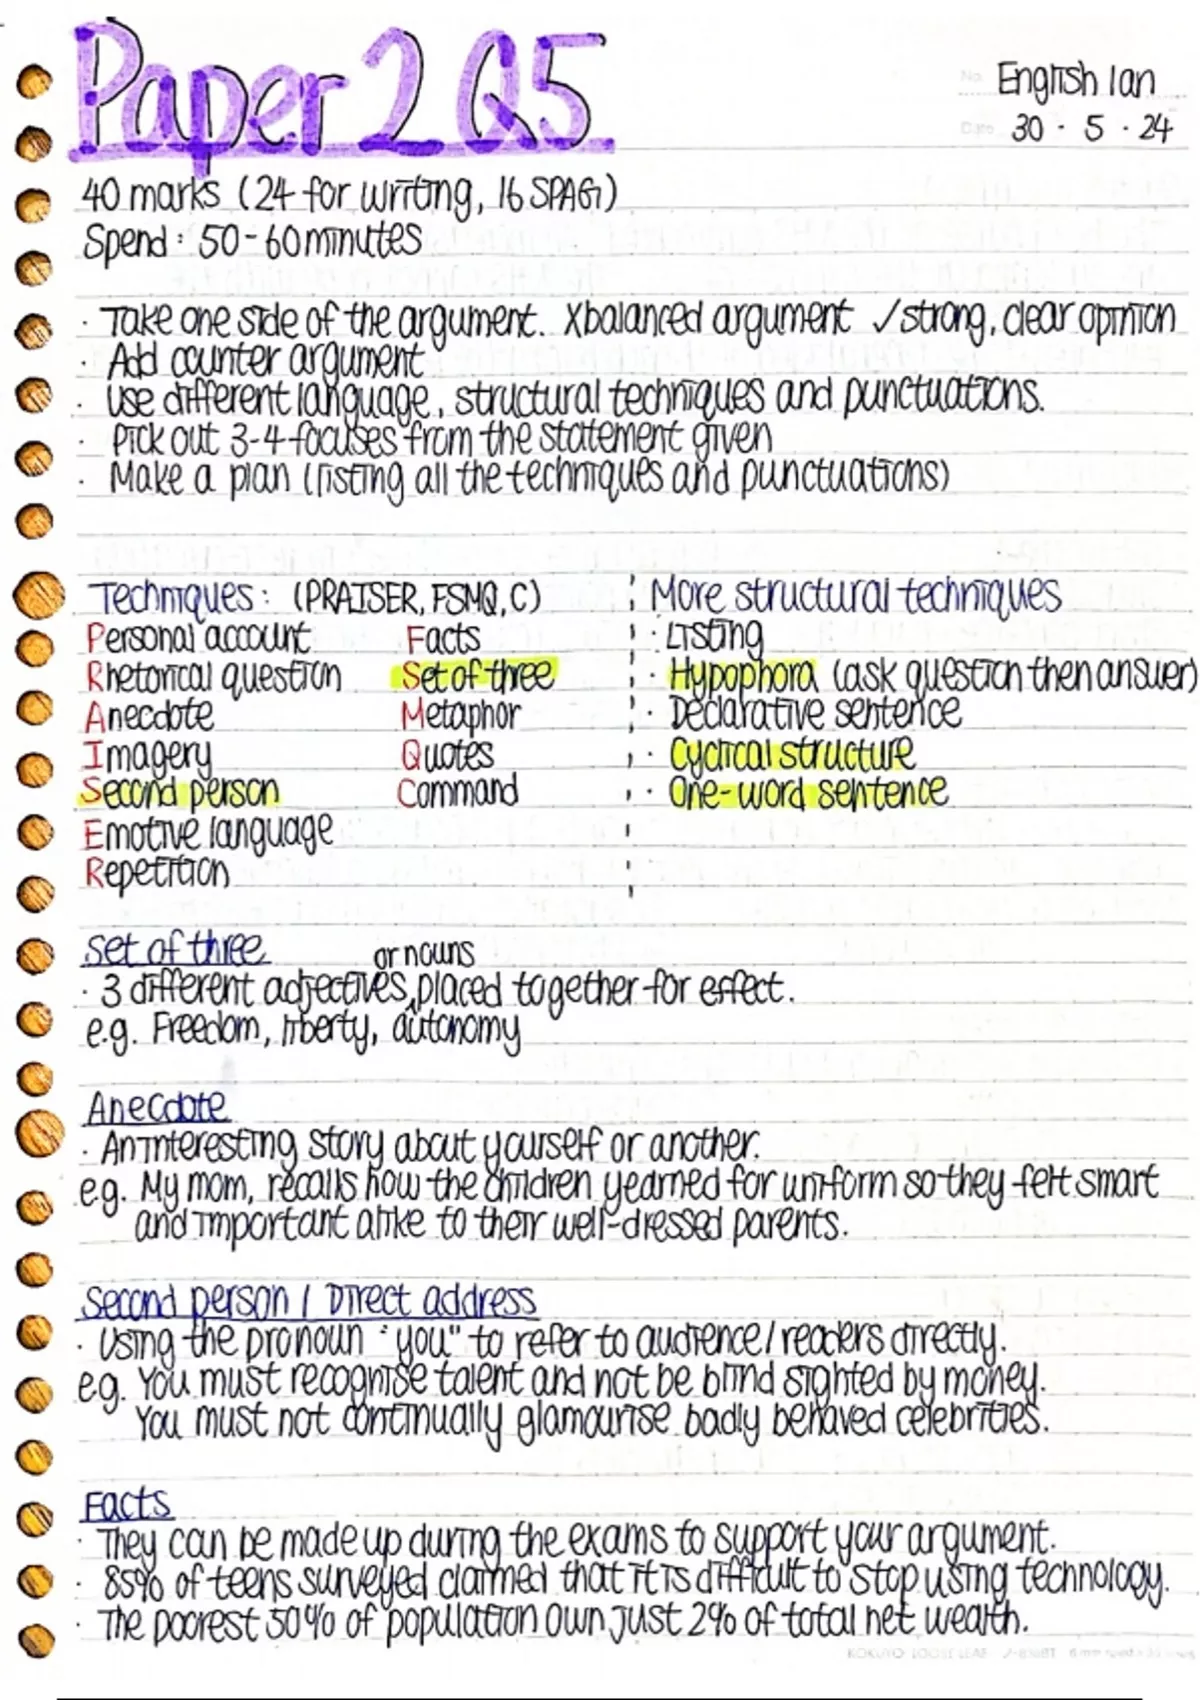 Paper 2 Q5
No. English lan
Date 30 · 5 · 24
40 marks (24 for writing, 16 SPAG)
Spend: 50-60 minutes
· Take one side of the argument. X balanced argument ✓ strong, clear opinion
· Add counter argument
· Use different language, structural techniques and punctuations.
· Pick out 3-4 focuses from the statement given
· Make a plan (listing all the techniques and punctuations)
Techniques: (PRAISER, FSMQ, C)
Personal account
Rhetorical question
Anecdote
Imagery
Second person
Emotive language
Repetition
Facts
Set of three
Metaphor
Quotes
Command
More structural techniques
· Listing
· Hypophora (ask question then answer)
· Declarative sentence
· Cyclical structure
· One-word sentence
Set of three
or nouns
· 3 different adjectives placed together for effect.
e.g. Freedom, liberty, autonomy
Anecdote
· An interesting story about yourself or another.
e.g. My mom, recalls how the children yearned for uniform so they felt smart
and important alike to their well-dressed parents.
Second person / Direct address
· Using the pronoun "you" to refer to audience/readers directly.
e.g. You must recognise talent and not be blind sighted by money.
You must not continually glamourise badly behaved celebrities.
Facts
· They can be made up during the exams to support your argument.
· 85% of teens surveyed claimed that it is difficult to stop using technology.
· The poorest 50% of population own just 2% of total net wealth.
KOKUYO LOOSE-LEAF